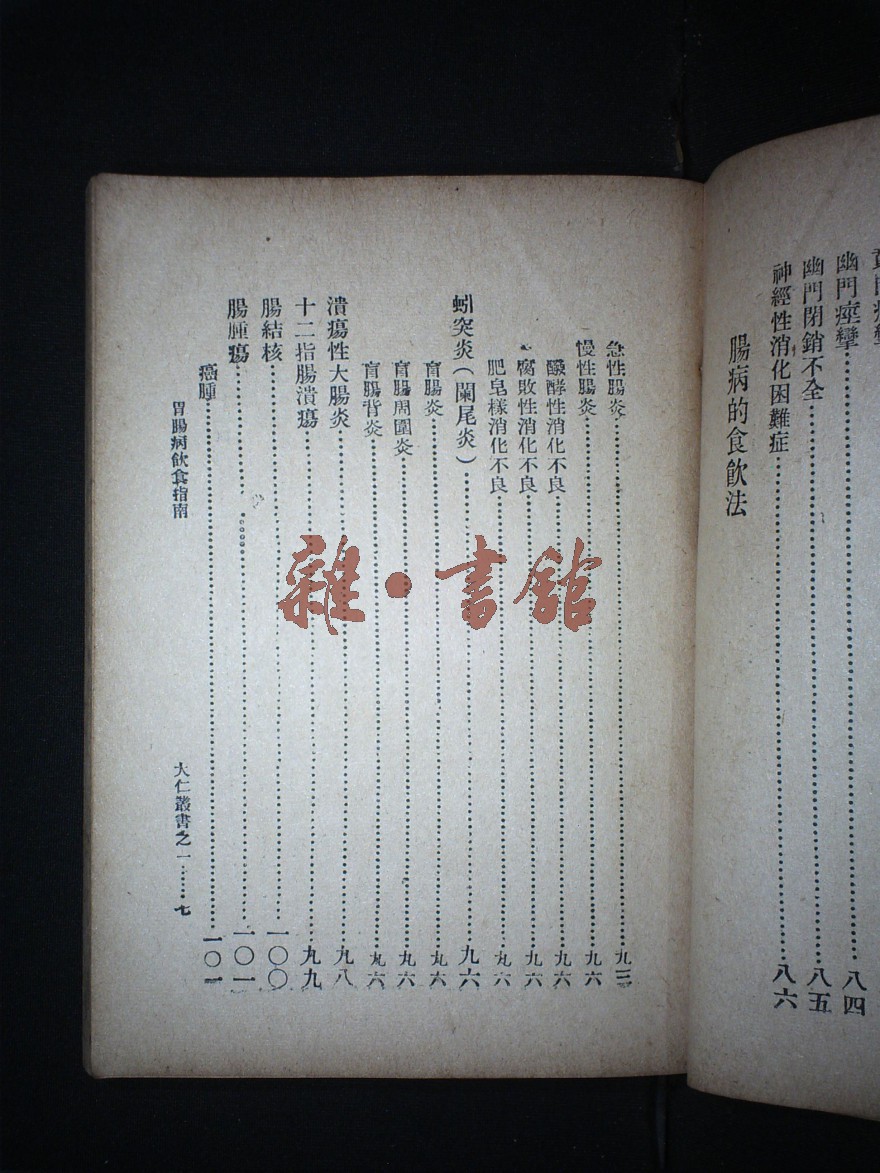 幽門痙攣……八四
幽門閉銷不全……八五
神經性消化困難症……八六
腸病的食飲法
急性腸炎……九三
慢性腸炎……九六
醱酵性消化不良……九六
腐敗性消化不良……九六
肥皂樣消化不良……九六
蚓突炎(闌尾炎)……九六
盲腸炎……九六
盲腸周圍炎……九六
盲腸背炎……九六
潰瘍性大腸炎……九八
十二指腸潰瘍……九九
腸結核……一〇〇
腸腫瘍……一〇一
癌腫……一〇一
胃腸病飲食指南
大仁叢書之一……七
雜·書館